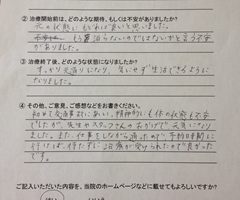 ② 治療開始前は、どのような期待、もしくは不安がありましたか?
元の状態にもどれば良いと思いました。
もう治らないのではないかと言う不安
がありました。
③ 治療終了後、どのような状態になりましたか?
すっかり元通りになり、気にせず生活できるように
なりました。
④ その他、ご意見、ご感想などをお書きください。
初めて交通事故にあい、精神的にも体の状態も不安
でしたが、先生やスタッフさんのおかげで元気になり
ました。また、仕事をしながら通ったので、予約時間に
行けば、待たずに治療が受けられたので良かった
です。
ご記入いただいた内容を、当院のホームページなどに載せてもよろしいですか?
はい
いいえ